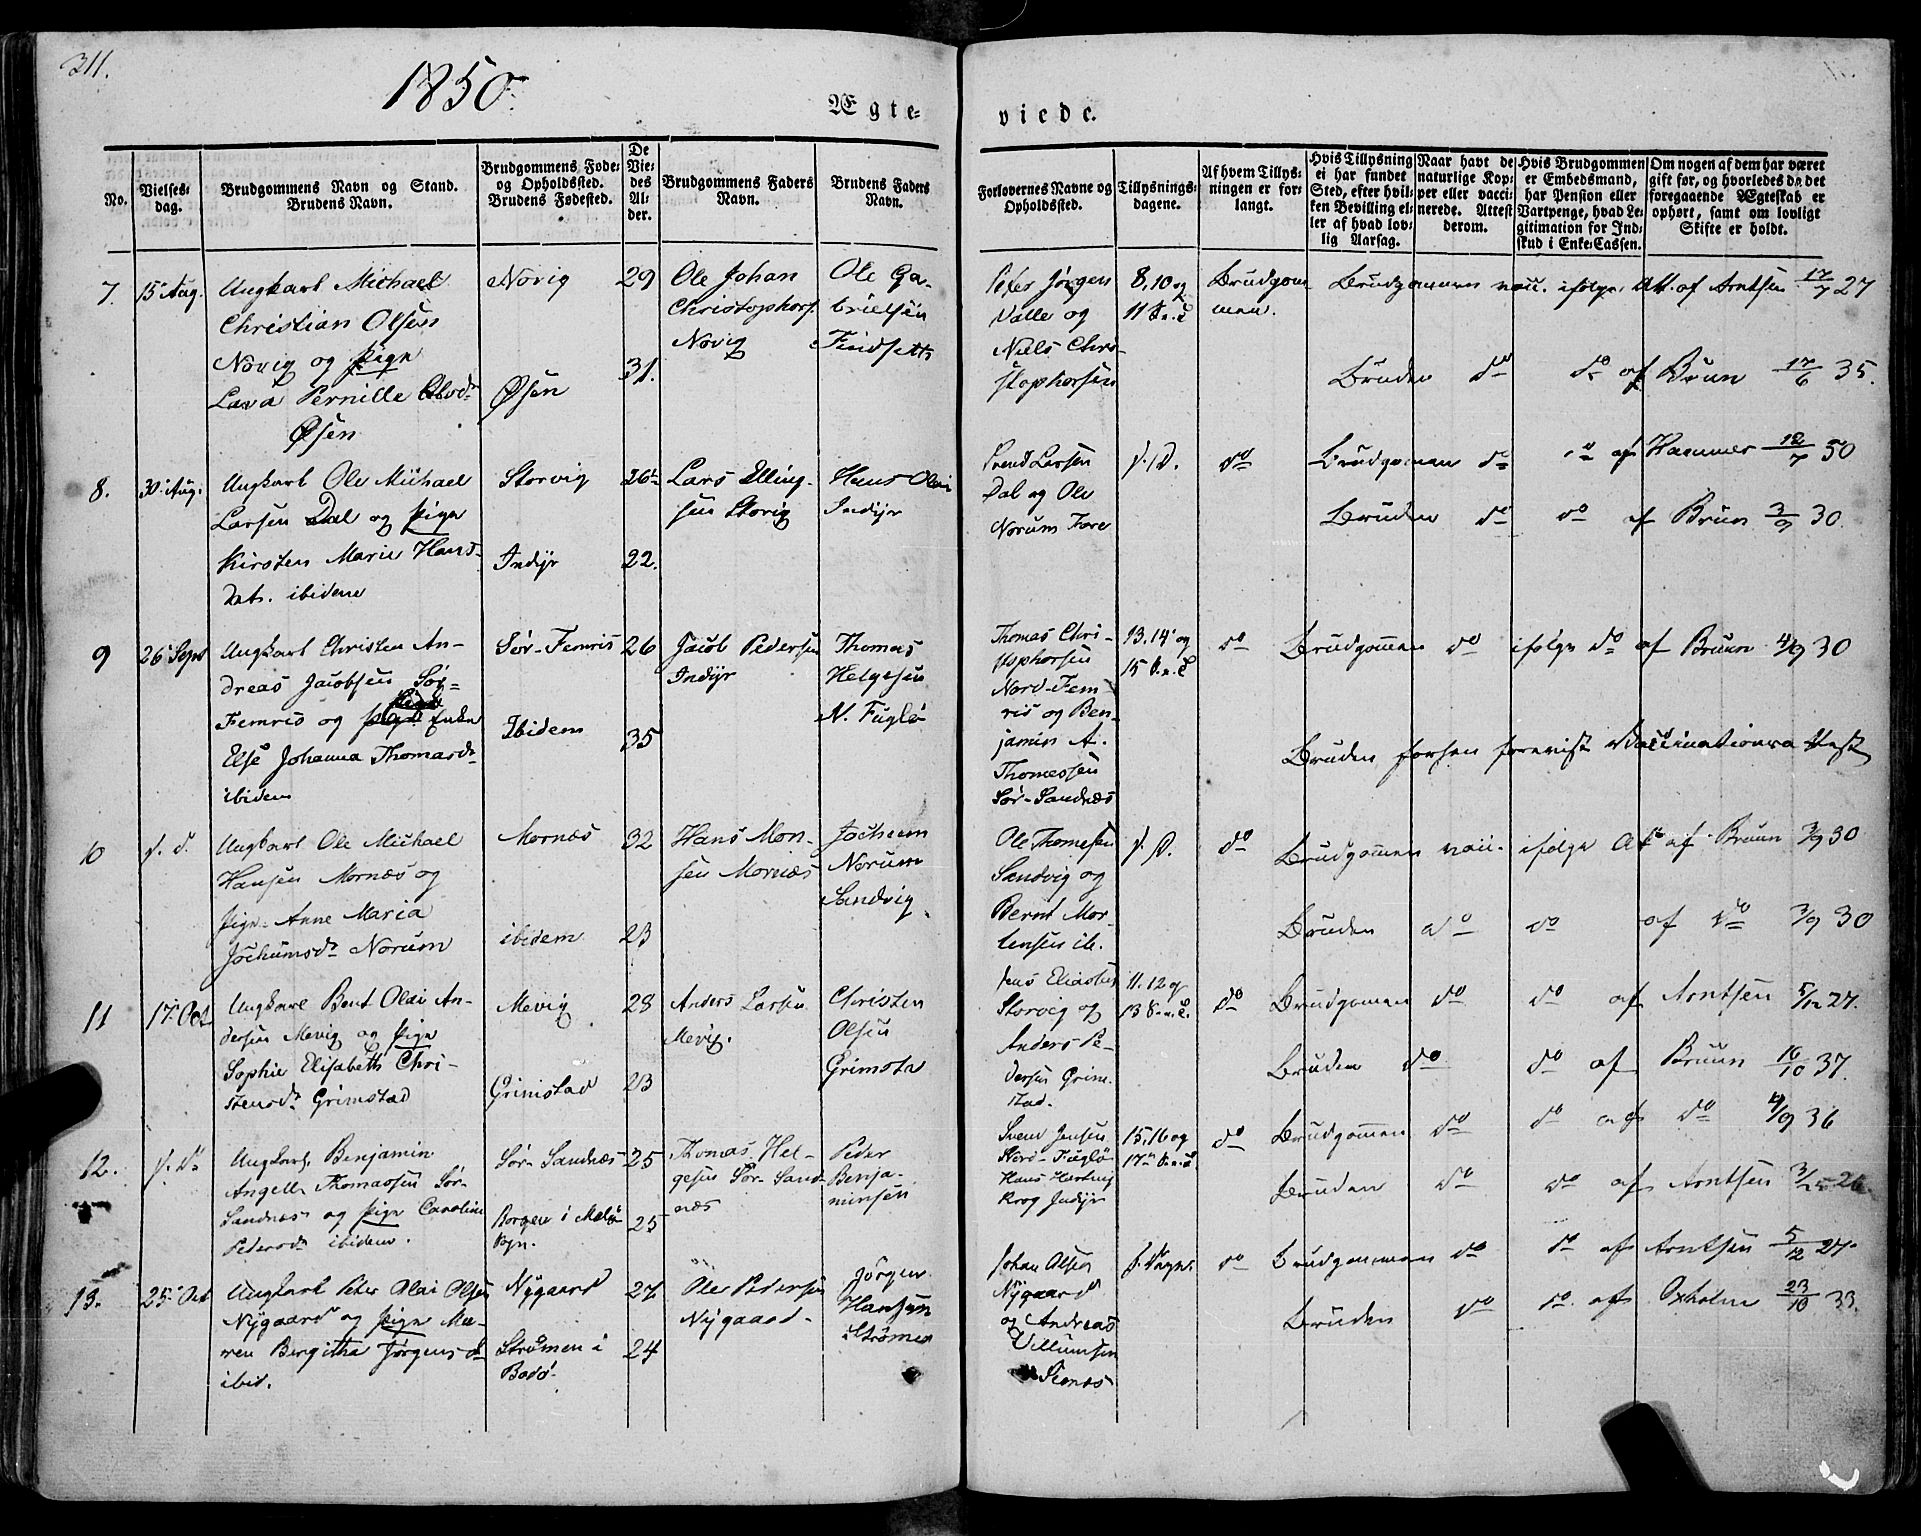 311.
1850
Ægte=
viede.
No.
Vielses=
dag.
Brudgommens Navn og Stand.
Brudens Navn.
Brudgommens Føde=
og Opholdssted.
Brudens Fødested.
De
Vie=
des
Al=
der.
Brudgommens Faders
Navn.
Brudens Faders
Navn.
Forlovernes Navne og
Opholdssted.
Tillysnings=
dagene.
Af hvem Tillys=
ningen er for=
langt.
Hvis Tillysning
ei har fundet
Sted, efter hvil=
ken Bevilling el=
ler af hvad lov=
lig Aarsag.
Naar havt de
naturlige Kop=
per eller vacci=
nerede. Attest
derom.
Hvis Brudgommen
er Embedsmand,
har Pension eller
Vartpenge, hvad Le=
gitimation for Ind=
skud i Enke=Cassen.
Om nogen af dem har været
gift før, og hvorledes da det
foregaaende Ægteskab er
ophørt, samt om lovligt
Skifte er holdt.
7.
15 Aug.
Ungkarl Michael
Christian Olsen
Novig og Pige
Lava Pernille Olsd
Øsen
Novig
Øsen
29
31.
Ole Johan
Christophers.
Novig
Ole Ga-
brielsen
Findseth
Peter Jørgen
Valle og
Niels Chri-
stophersen
8, 10 og
11 S. n. T
Brudgom
men.
Brudgommen vacc. ifølge Att. af Arntsen 17/7 27
Bruden do do af Brun 17/6 35.
8.
30 Aug.
Ungkarl Ole Michael
Larsen Dal og Pige
Kirsten Marie Hans-
Dat. ibidem
Storvig
Indyr
26
22.
Lars Elling-
sen Storvig
Hans Olai
Indyr
Svend Larsen
Dal og Ole
Norum Fore
s. D.
do
Brudgommen do do af Hammer 12/7 50
Bruden do do af Brun 3/9 30.
9
26 Sept
Ungkarl Christen An-
dreas Jacobsen Sør-
Femris og Enke
Else Johanna Thomasd
ibidem
Sør-Femris
Ibidem
26
35
Jacob Pedersen
Indyr
Thomas
Helgesen
N. Fuglø
Thomas Chri-
stophersen
Nord-Fem-
ris og Ben-
jamin A.
Thomessen
Sør-Sandnæs
13. 14 og
15 S. n. T
do
Brudgommen do ifølge do af Bruun 4/9 30
Bruden forhen forevist Vaccinationsattest
10
s. d.
Ungkarl Ole Michael
Hansen Mornæs og
Pige Anne Maria
Jochumsd Norum
Mornæs
ibidem
32
23
Hans Mon-
sen Mornæs
Jochum
Norum
Sandvig
Ole Thomesen
Sandvig og
Bernt Mor-
tensen ib.
s. D.
do
Brudgommen vacc. ifølge Att af Bruun 3/9 30
Bruden do do af do 3/9 30
11
17 Oct
Ungkarl Bent Olai An-
dersen Mevig og Pige
Sophie Elisabeth Chri-
stensd Grimstad
Mevig
Grimstad
28
23
Anders Larsen
Mevig.
Christen
Olsen
Grimsta
Jens Eliassen
Storvig og
Anders Pe-
dersen Grim-
stad.
11. 12 og
13 S. n. T.
do
Brudgommen do do af Arntsen 5/12 27.
Bruden do do af Bruun 16/10 37.
12.
s. D
Ungkarl Benjamin
Angell Thomassen Sør-
Sandnæs og Pige Caroline
Pedersd ibidem.
Sør-Sandnæs
Borgen i Melø
Sgn.
25
25
Thomas Hel-
gesen Sør-Sand-
næs
Peder
Benja-
minsen
Svend Jensen
Nord-Fuglø
Hans Hartvig
Krog Indyr
15, 16 og
17 S. n. T
do
Brudgommen do do af do 4/9 36
Bruden do do af Arntsen
13.
25 Oct
Ungkarl Peter Olai Olsen
Nygaard og Pige Ma-
ren Bergitha Jørgensd
ibid.
Nygaard
Strømen i
Bodø
27
24
Ole Pedersen
Nygaard
Jørgen
Hansen
Strømen
Johan Olsen
Nygaard
og Andreas
Villumsen
s. Dage.
do
Brudgommen do do af Arntsen 5/12 27
Bruden do do af Oxholm 23/10 33.